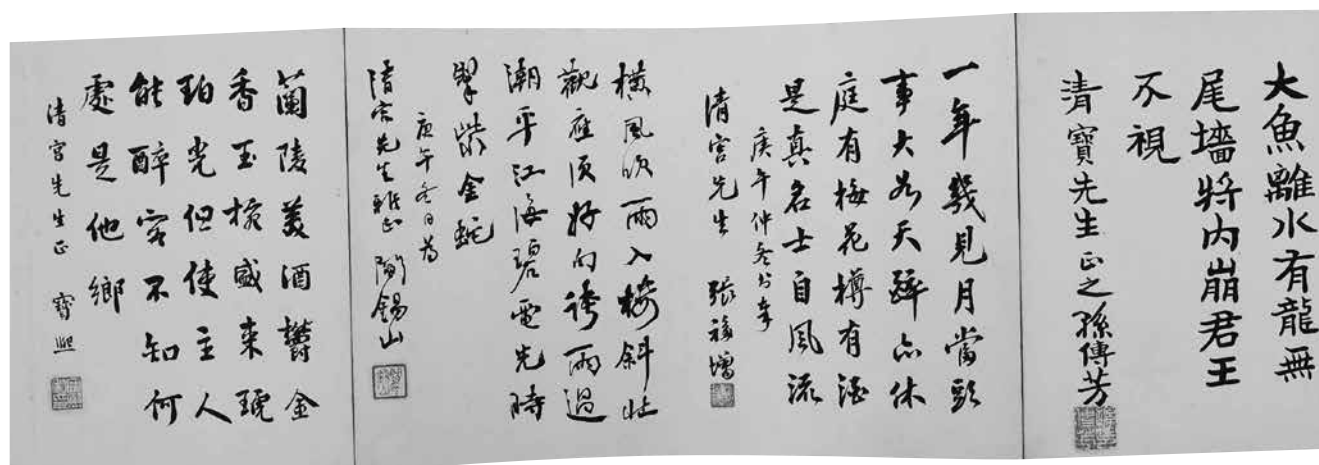 大魚離水有龍無
尾墻將内崩君王
不視
清寶先生正之 孫傳芳
一年幾見月當頭
事大如天醉亦休
庭有梅花樽有酒
是真名士自風流
庚午仲冬書奉
清宮先生 張
橫風吹雨入樓斜壯
觀應須好句誇雨過
潮平江海碧電光時
掣紫金蛇
庚午冬日為
清宮先生雅正 閻錫山
蘭陵美酒鬱金
香玉椀盛來琥
珀光但使主人
能醉客不知何
處是他鄉
清宮先生正 寶熙